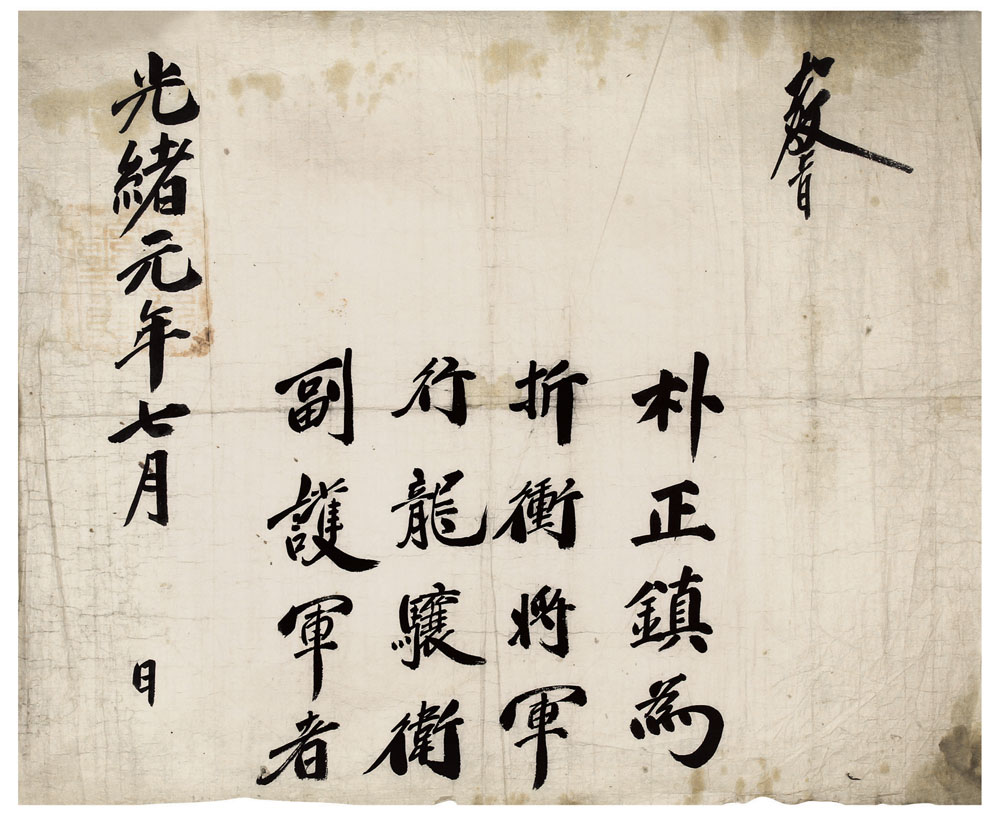 敎旨
朴正鎮爲
折衝將軍
行龍驤衛
副護軍者
光緖元年七月 日